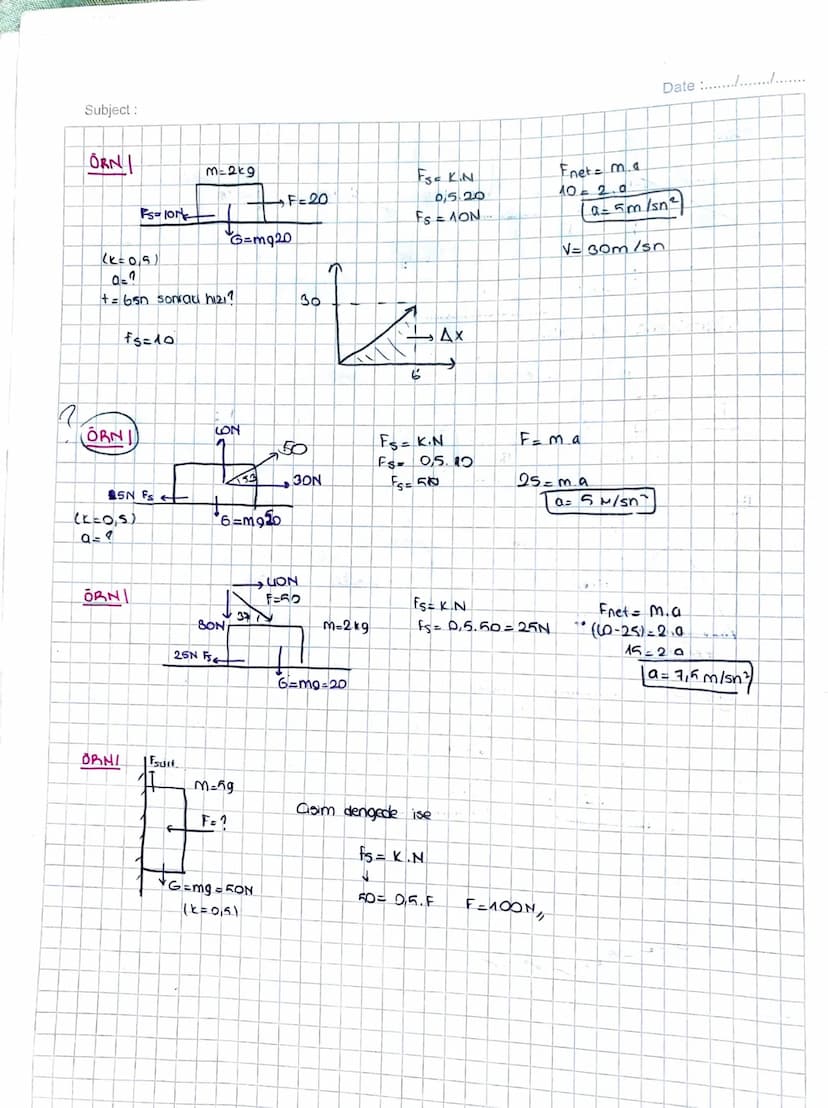 Date :......../......../........
Subject :
ÖRN |
m=2kg
F=20
Fs=10N
G=mg20
(k=0,5)
a=?
t=6sn sonraki hızı?
fs=10
Fs= k.N
0,5.20
Fs = 10N
Fnet= m.a
10= 2.a
a= 5m/sn²
V= 30m/sn
30
Δx
6
?
ÖRN |
40N
50
53
30N
Fs
G=mg
(k=0,5)
a=?
Fs= k.N
Fs= 0,5.10
Fs=
F= m.a
25=m.a
a= 5 m/sn²
ÖRN |
40N
F=50
37
30N
m=2kg
25N Fs
G=mg=20
Fs=k.N
Fs= 0,5.50=25N
Fnet= m.a
(40-25)=2.a
15=2a
a= 7,5m/sn²
ÖRN |
Fsürt.
F=?
G=mg=50N
(k=0,5)
Cisim dengede ise
fs= k.N
50= 0,5.F F=100N,,